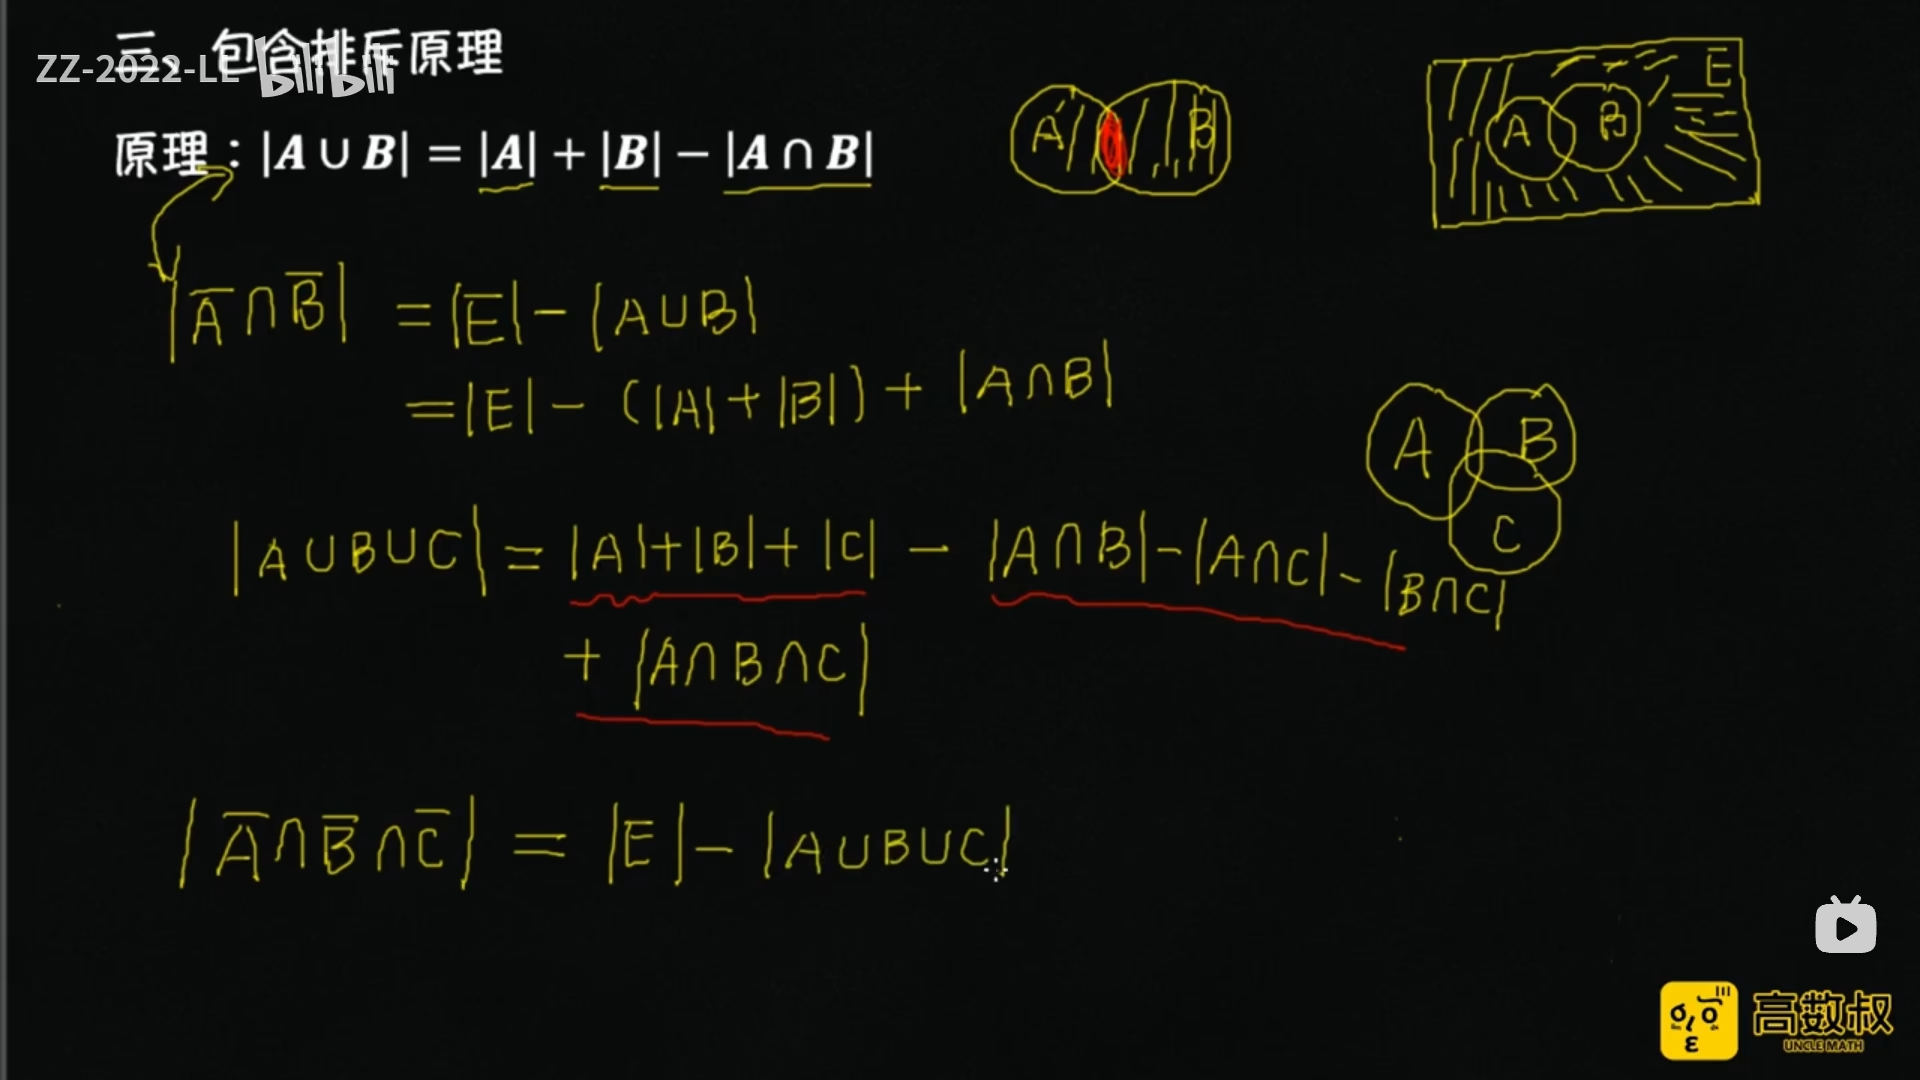 三、包含排斥原理
ZZ-2022-LE bilibili
原理：|A ∪ B| = |A| + |B| − |A ∩ B|
A B
A B E
|A̅∩B̅| = |E| − |A∪B|
= |E| − (|A| + |B|) + |A∩B|
A B
C
|A∪B∪C| = |A|+|B|+|C| − |A∩B|−|A∩C|−|B∩C|
+ |A∩B∩C|
|A̅∩B̅∩C̅| = |E|−|A∪B∪C|
高数叔
UNCLE MATH